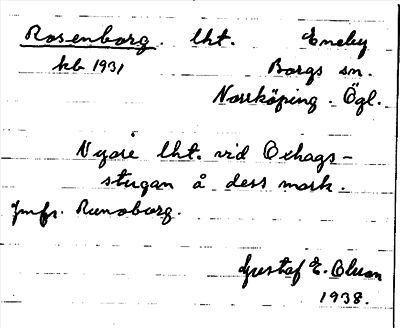 Rosenborg. lht. Eneby
kb 1931 Borgs sn.
Norrköping. Ögl.
Nyare lht. vid Oxhags-
stugan å dess mark.
Jmfr. Runoborg.
Gustaf E. Olson
1938.